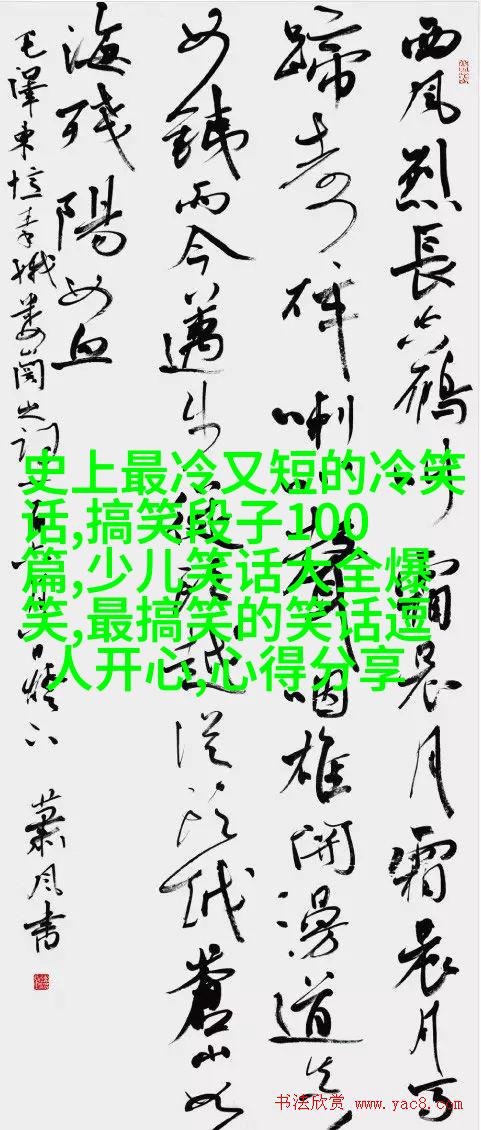 西風烈長空鴈叫霜晨月霜晨月马
蹄声碎喇叭咽雄関漫道真
如鐵而今邁步從頭越從頭越蒼山如
海残陽如血
毛澤東憶秦娥娄山關之詞
蕭風書
史上最冷又短的冷笑
话,搞笑段子100
篇,少儿笑话大全爆
笑,最搞笑的笑话逗
人开心,心得分享
书法欣赏 www.yac8.com